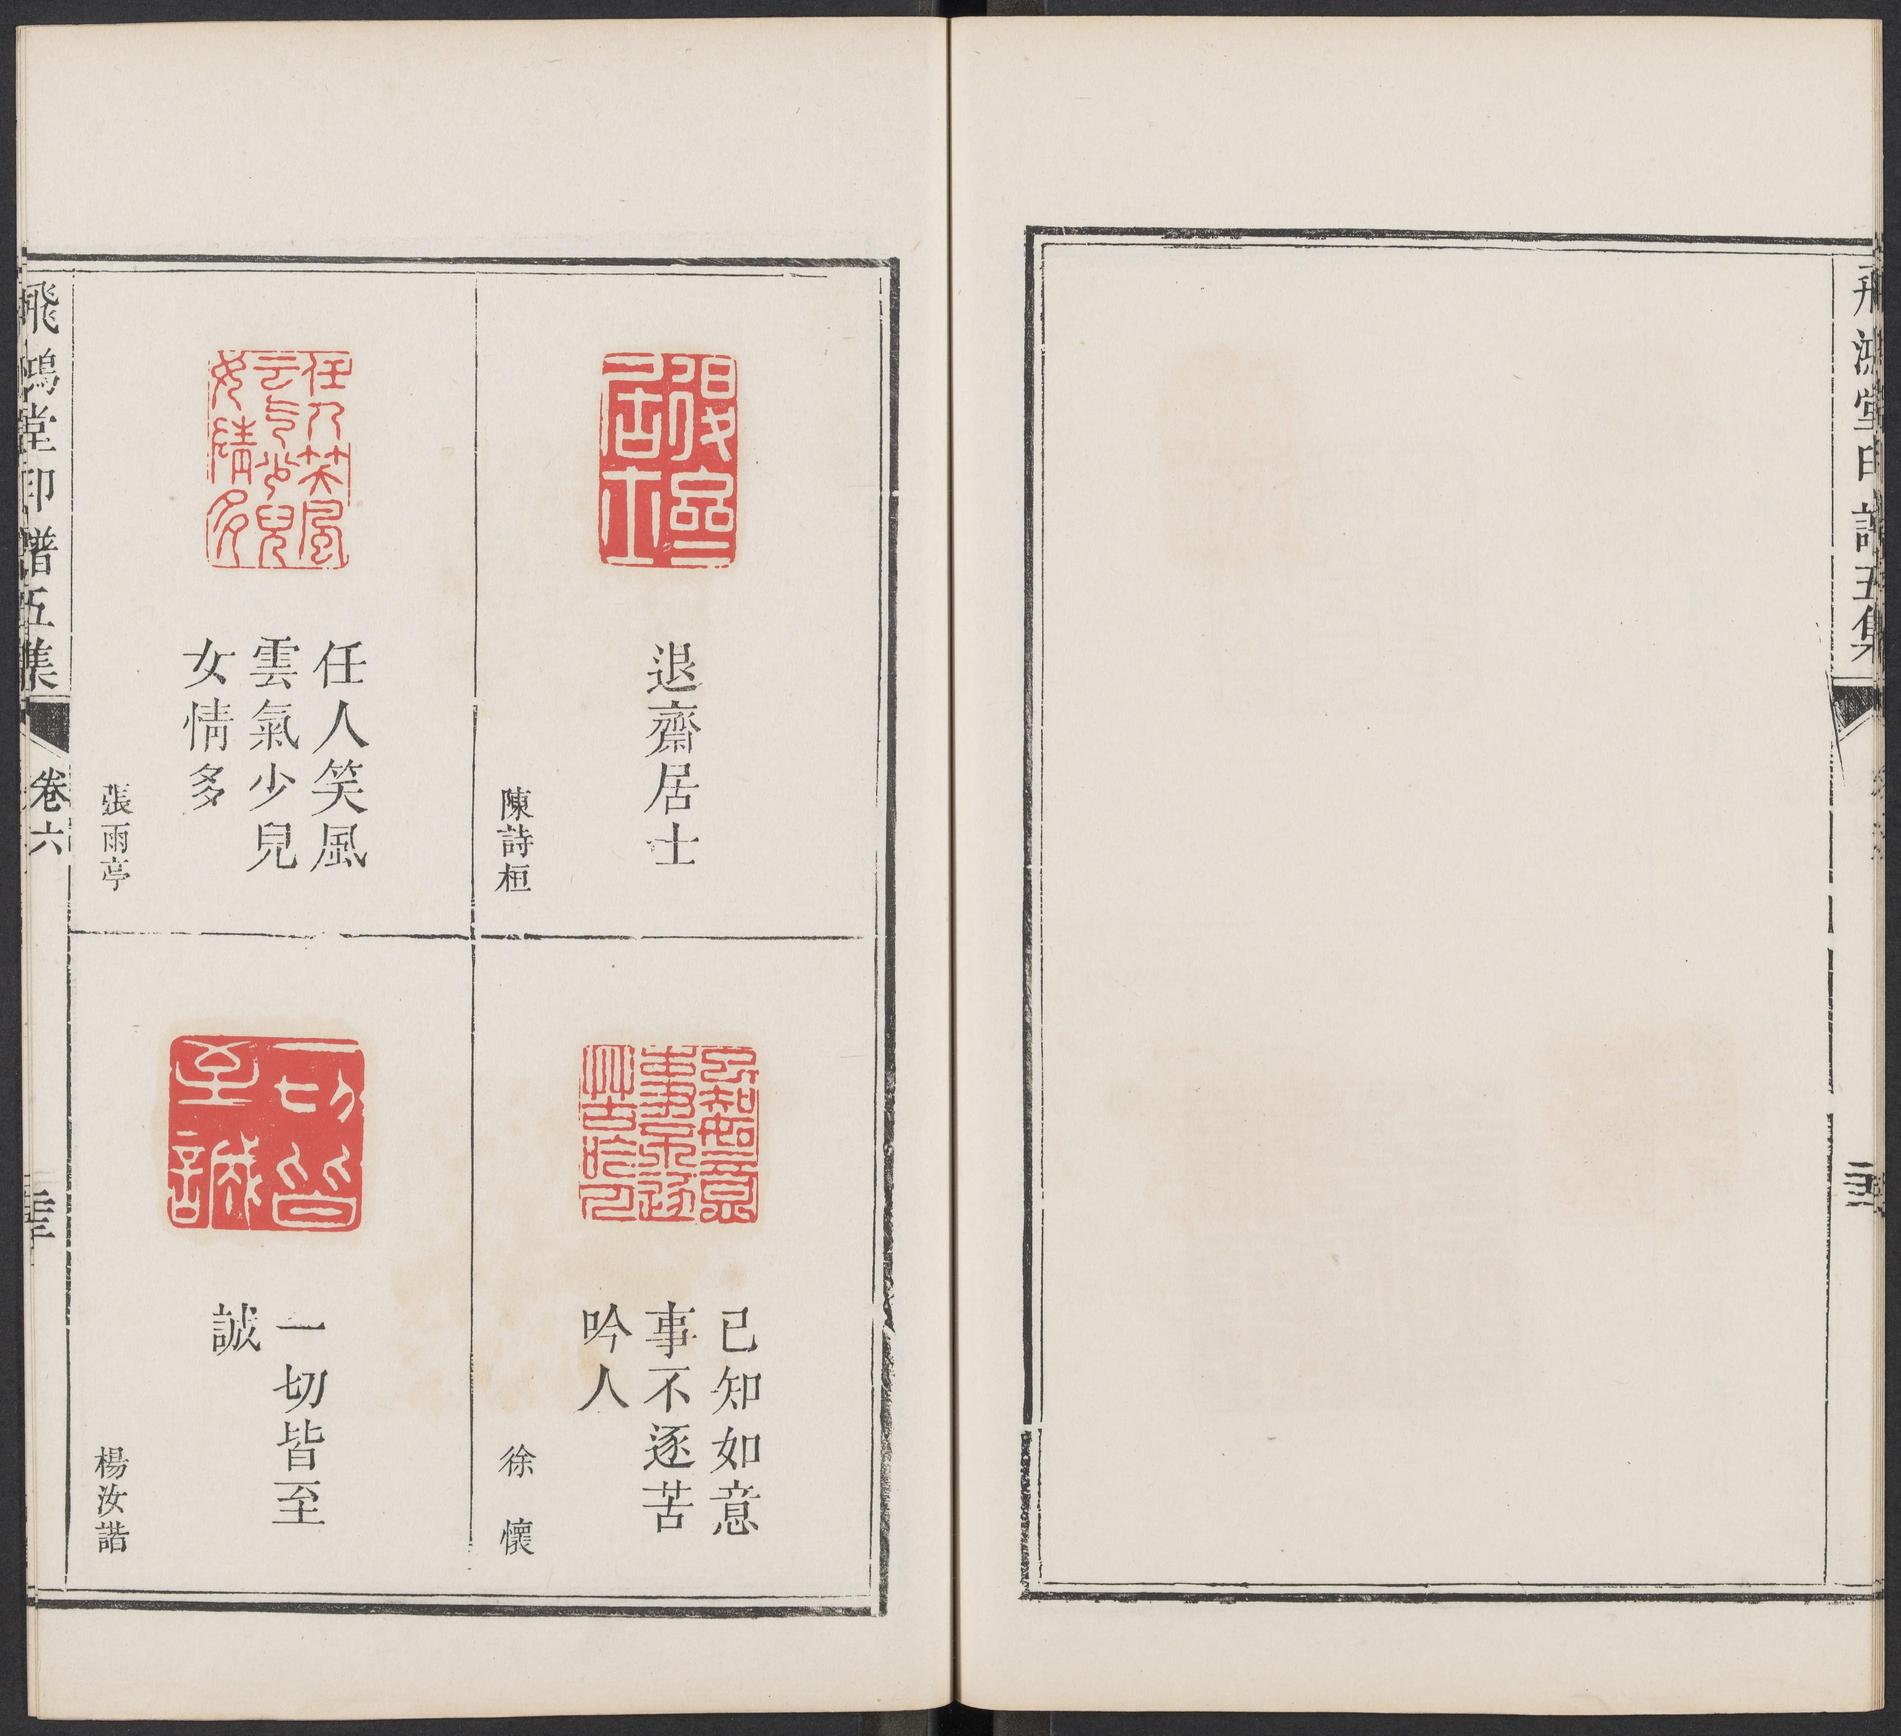 飛鴻堂印譜五集
退齋居士
陳詩桓
任人笑風
雲氣少兒
女情多
張雨亭
已知如意
事不逐苦
吟人
徐懷
一切皆至
誠
楊汝諧
飛鴻堂印譜五集
卷六